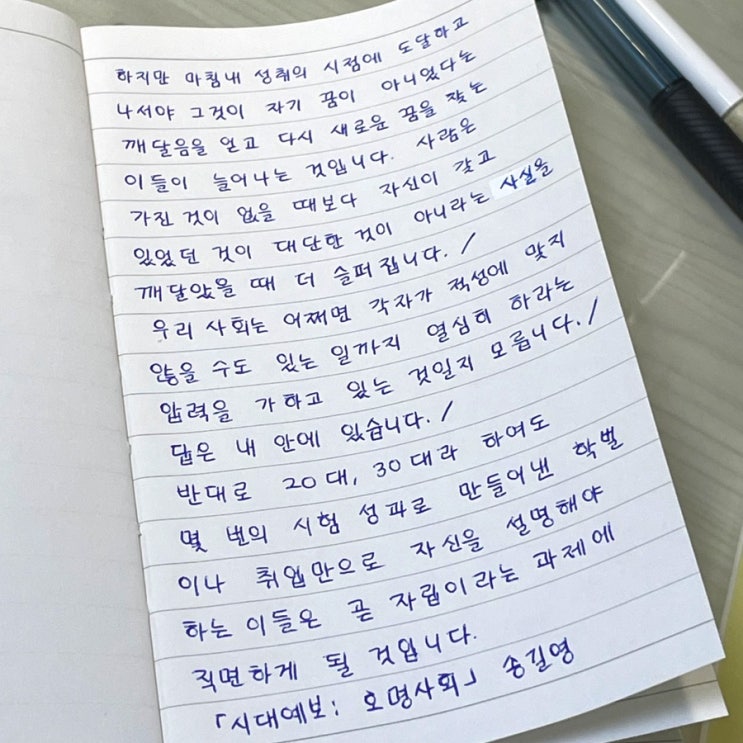 하지만 마침내 성취의 시점에 도달하고
나서야 그것이 자기 꿈이 아니었다는
깨달음을 얻고 다시 새로운 꿈을 찾는
이들이 늘어나는 것입니다. 사람은
가진 것이 없을 때보다 자신이 갖고
있었던 것이 대단한 것이 아니라는 사실을
깨달았을 때 더 슬퍼집니다. /
우리 사회는 어쩌면 각자가 적성에 맞지
않을 수도 있는 일까지 열심히 하라는
압력을 가하고 있는 것일지 모릅니다. /
답은 내 안에 있습니다. /
반대로 20대, 30대라 하여도
몇 번의 시험 성과로 만들어낸 학벌
이나 취업만으로 자신을 설명해야
하는 이들은 곧 자립이라는 과제에
직면하게 될 것입니다.
「시대예보: 호명사회」 송길영